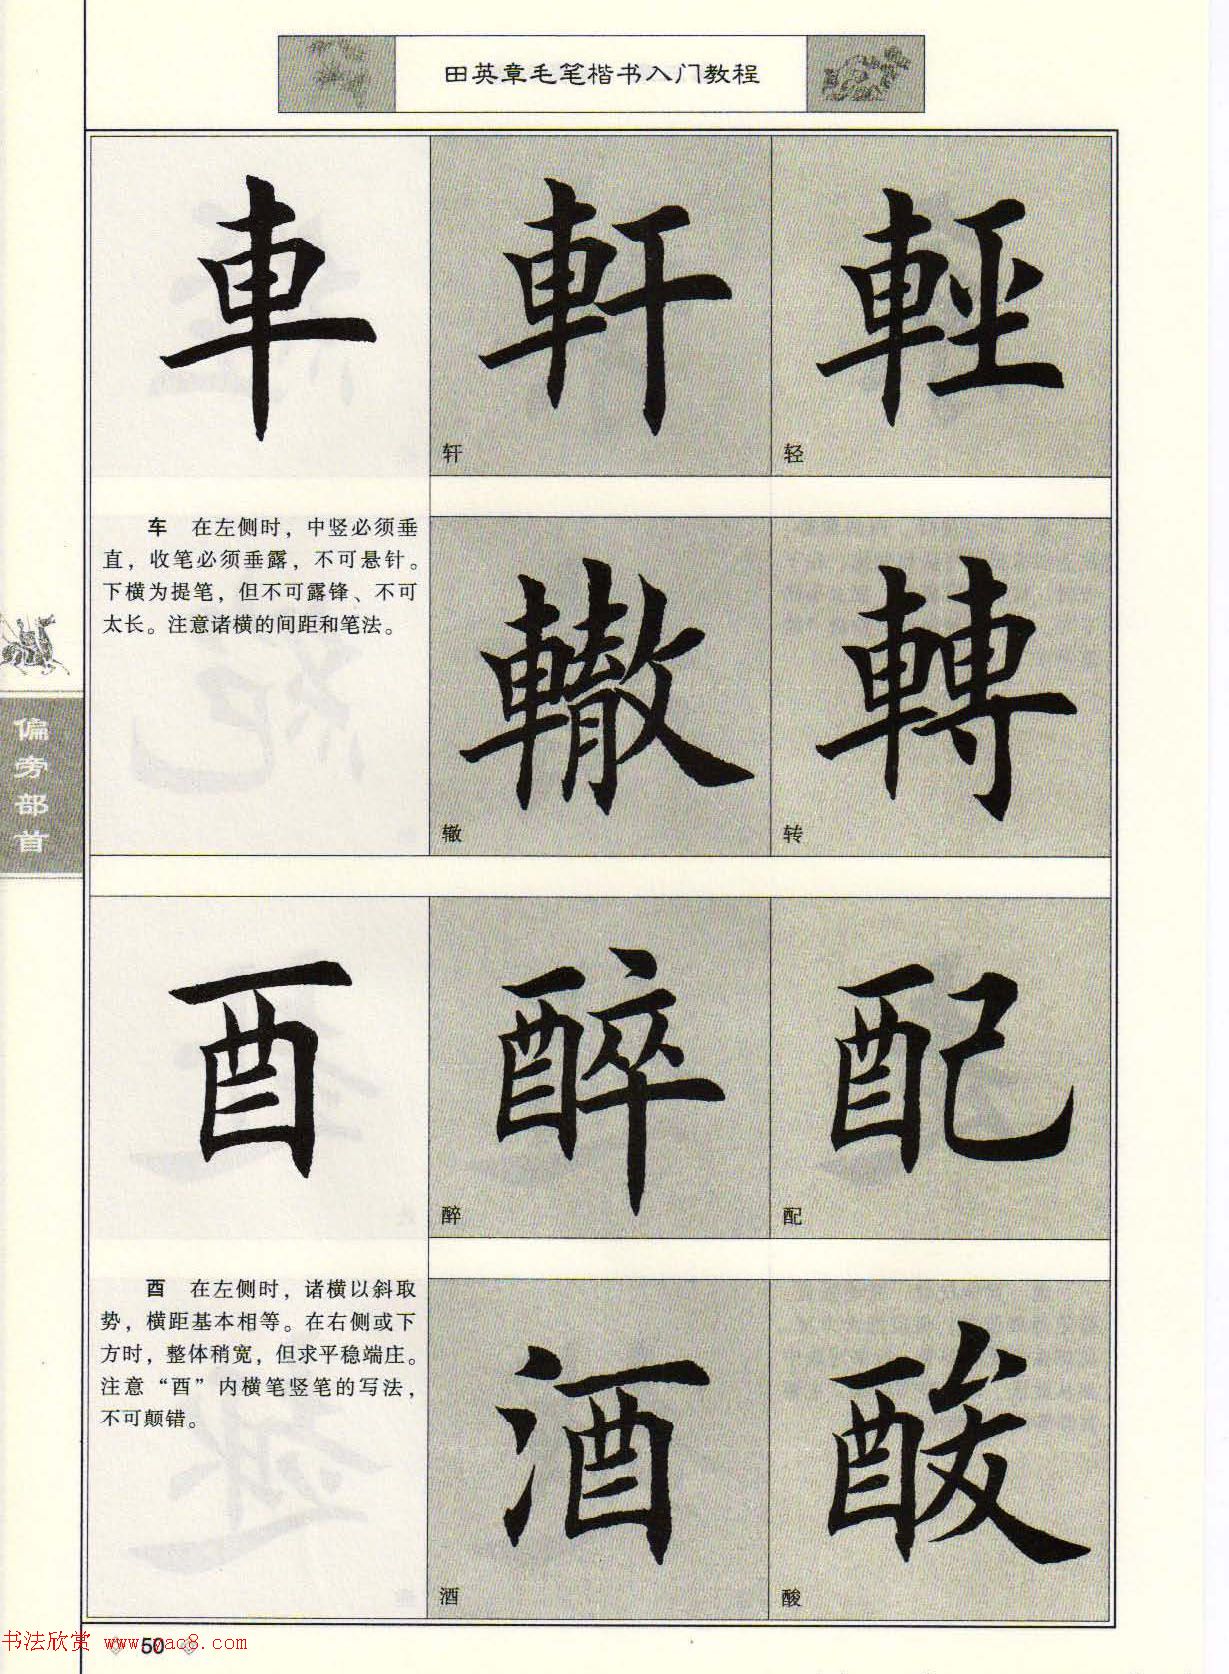 田英章毛笔楷书入门教程
車
軒
輕
轩
轻
车 在左侧时，中竖必须垂
直，收笔必须垂露，不可悬针。
下横为提笔，但不可露锋、不可
太长。注意诸横的间距和笔法。
轍
轉
辙
转
偏旁部首
酉
醉
配
醉
配
酉 在左侧时，诸横以斜取
势，横距基本相等。在右侧或下
方时，整体稍宽，但求平稳端庄。
注意“酉”内横笔竖笔的写法，
不可颠错。
酒
酸
酒
酸
书法欣赏 www.yac8.com
50